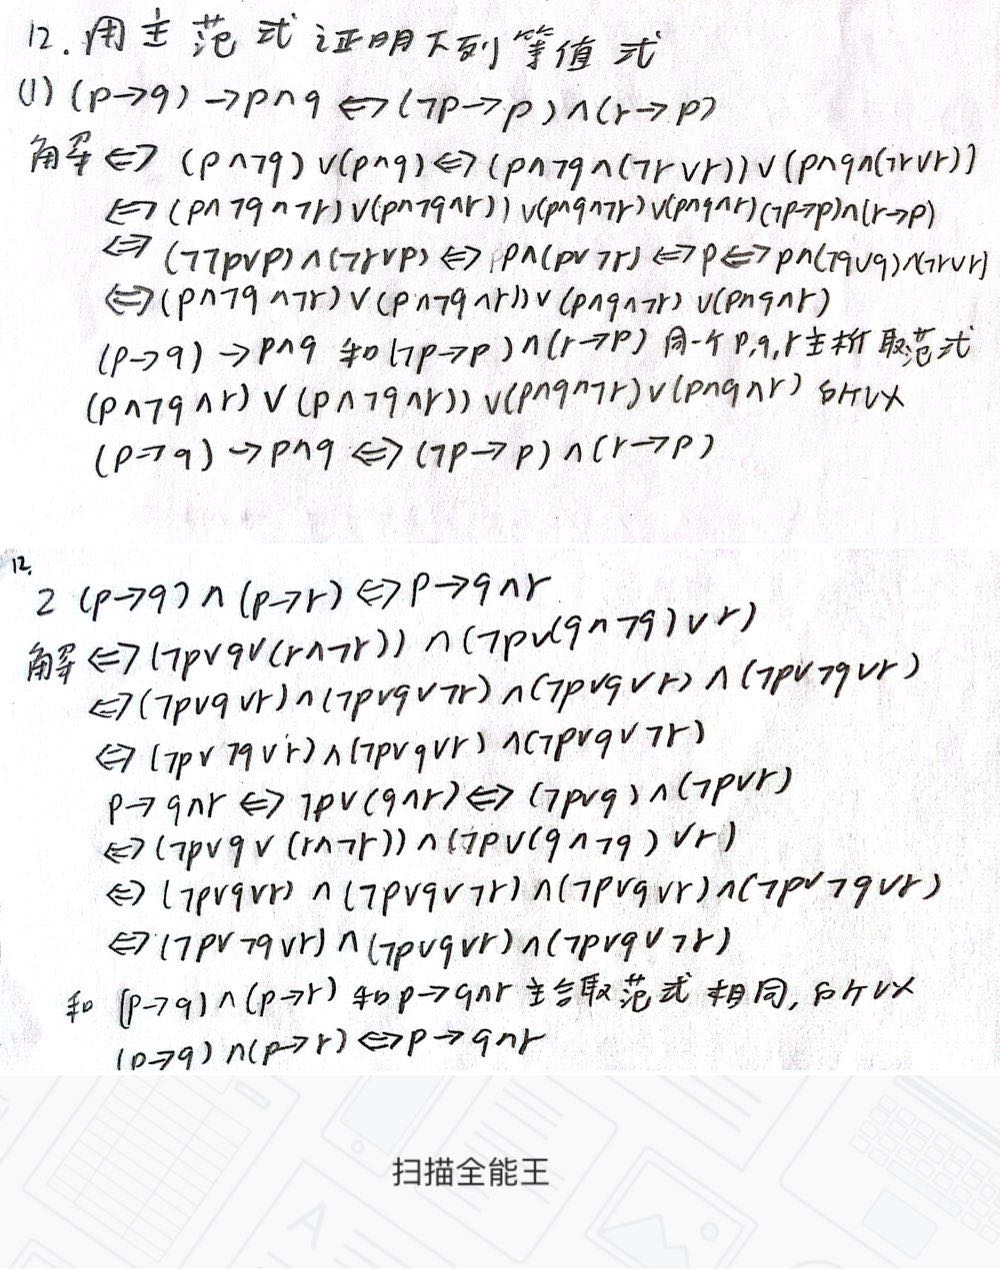 12. 用主范式证明下列等值式
(1) (p→q)→p∧q ⇔ (¬p→p)∧(r→p)
解 ⇔ (p∧¬q)∨(p∧q) ⇔ (p∧¬q∧(¬r∨r))∨(p∧q∧(¬r∨r))
⇔ (p∧¬q∧¬r)∨(p∧¬q∧r))∨(p∧q∧¬r)∨(p∧q∧r)(¬p→p)∧(r→p)
⇔ (¬¬p∨p)∧(¬r∨p) ⇔ p∧(p∨¬r) ⇔ p ⇔ p∧(¬q∨q)∧(¬r∨r)
⇔ (p∧¬q∧¬r)∨(p∧¬q∧r))∨(p∧q∧¬r)∨(p∧q∧r)
(p→q)→p∧q 和(¬p→p)∧(r→p) 同一个p,q,r主析取范式
(p∧¬q∧r)∨(p∧¬q∧r))∨(p∧q∧¬r)∨(p∧q∧r) 所以
(p→q)→p∧q ⇔ (¬p→p)∧(r→p)
12.
2 (p→q)∧(p→r) ⇔ p→q∧r
解 ⇔ (¬p∨q∨(r∧¬r))∧(¬p∨(q∧¬q)∨r)
⇔ (¬p∨q∨r)∧(¬p∨q∨¬r)∧(¬p∨q∨r)∧(¬p∨¬q∨r)
⇔ (¬p∨¬q∨r)∧(¬p∨q∨r)∧(¬p∨q∨¬r)
p→q∧r ⇔ ¬p∨(q∧r) ⇔ (¬p∨q)∧(¬p∨r)
⇔ (¬p∨q∨(r∧¬r))∧(¬p∨(q∧¬q)∨r)
⇔ (¬p∨q∨r)∧(¬p∨q∨¬r)∧(¬p∨q∨r)∧(¬p∨¬q∨r)
⇔ (¬p∨¬q∨r)∧(¬p∨q∨r)∧(¬p∨q∨¬r)
和 (p→q)∧(p→r) 和p→q∧r 主合取范式相同,所以
(p→q)∧(p→r) ⇔ p→q∧r
扫描全能王